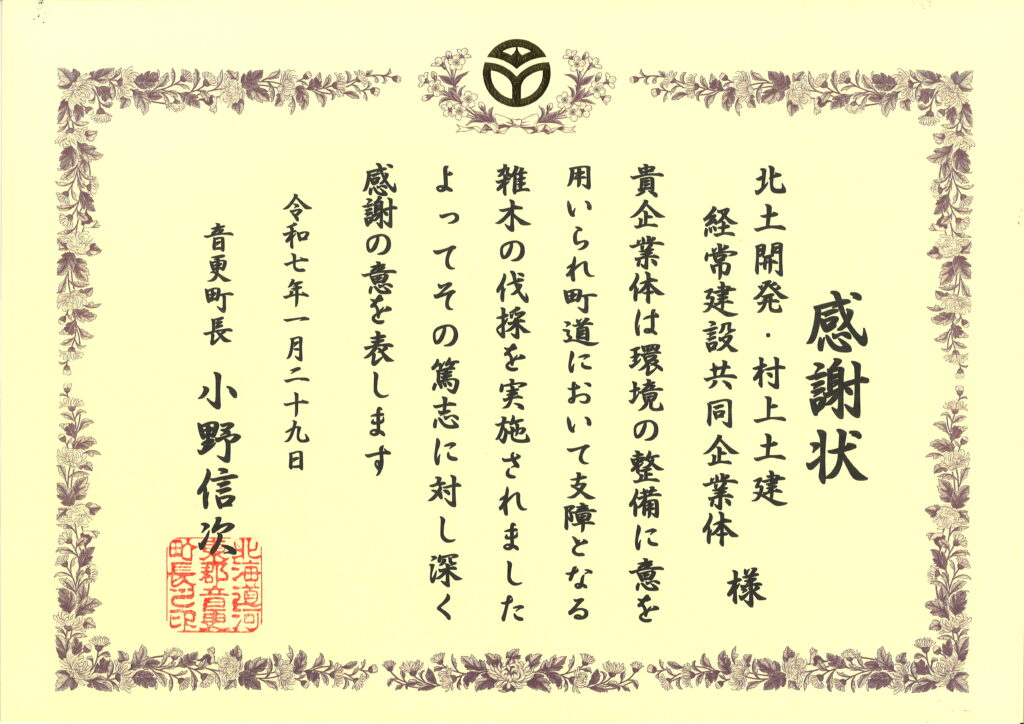 感謝状
北土開発・村上土建
経常建設共同企業体 様
貴企業体は環境の整備に意を
用いられ町道において支障となる
雑木の伐採を実施されました
よってその篤志に対し深く
感謝の意を表します
令和七年一月二十九日
音更町長 小野信次
北海道河
東郡音更
町長之印